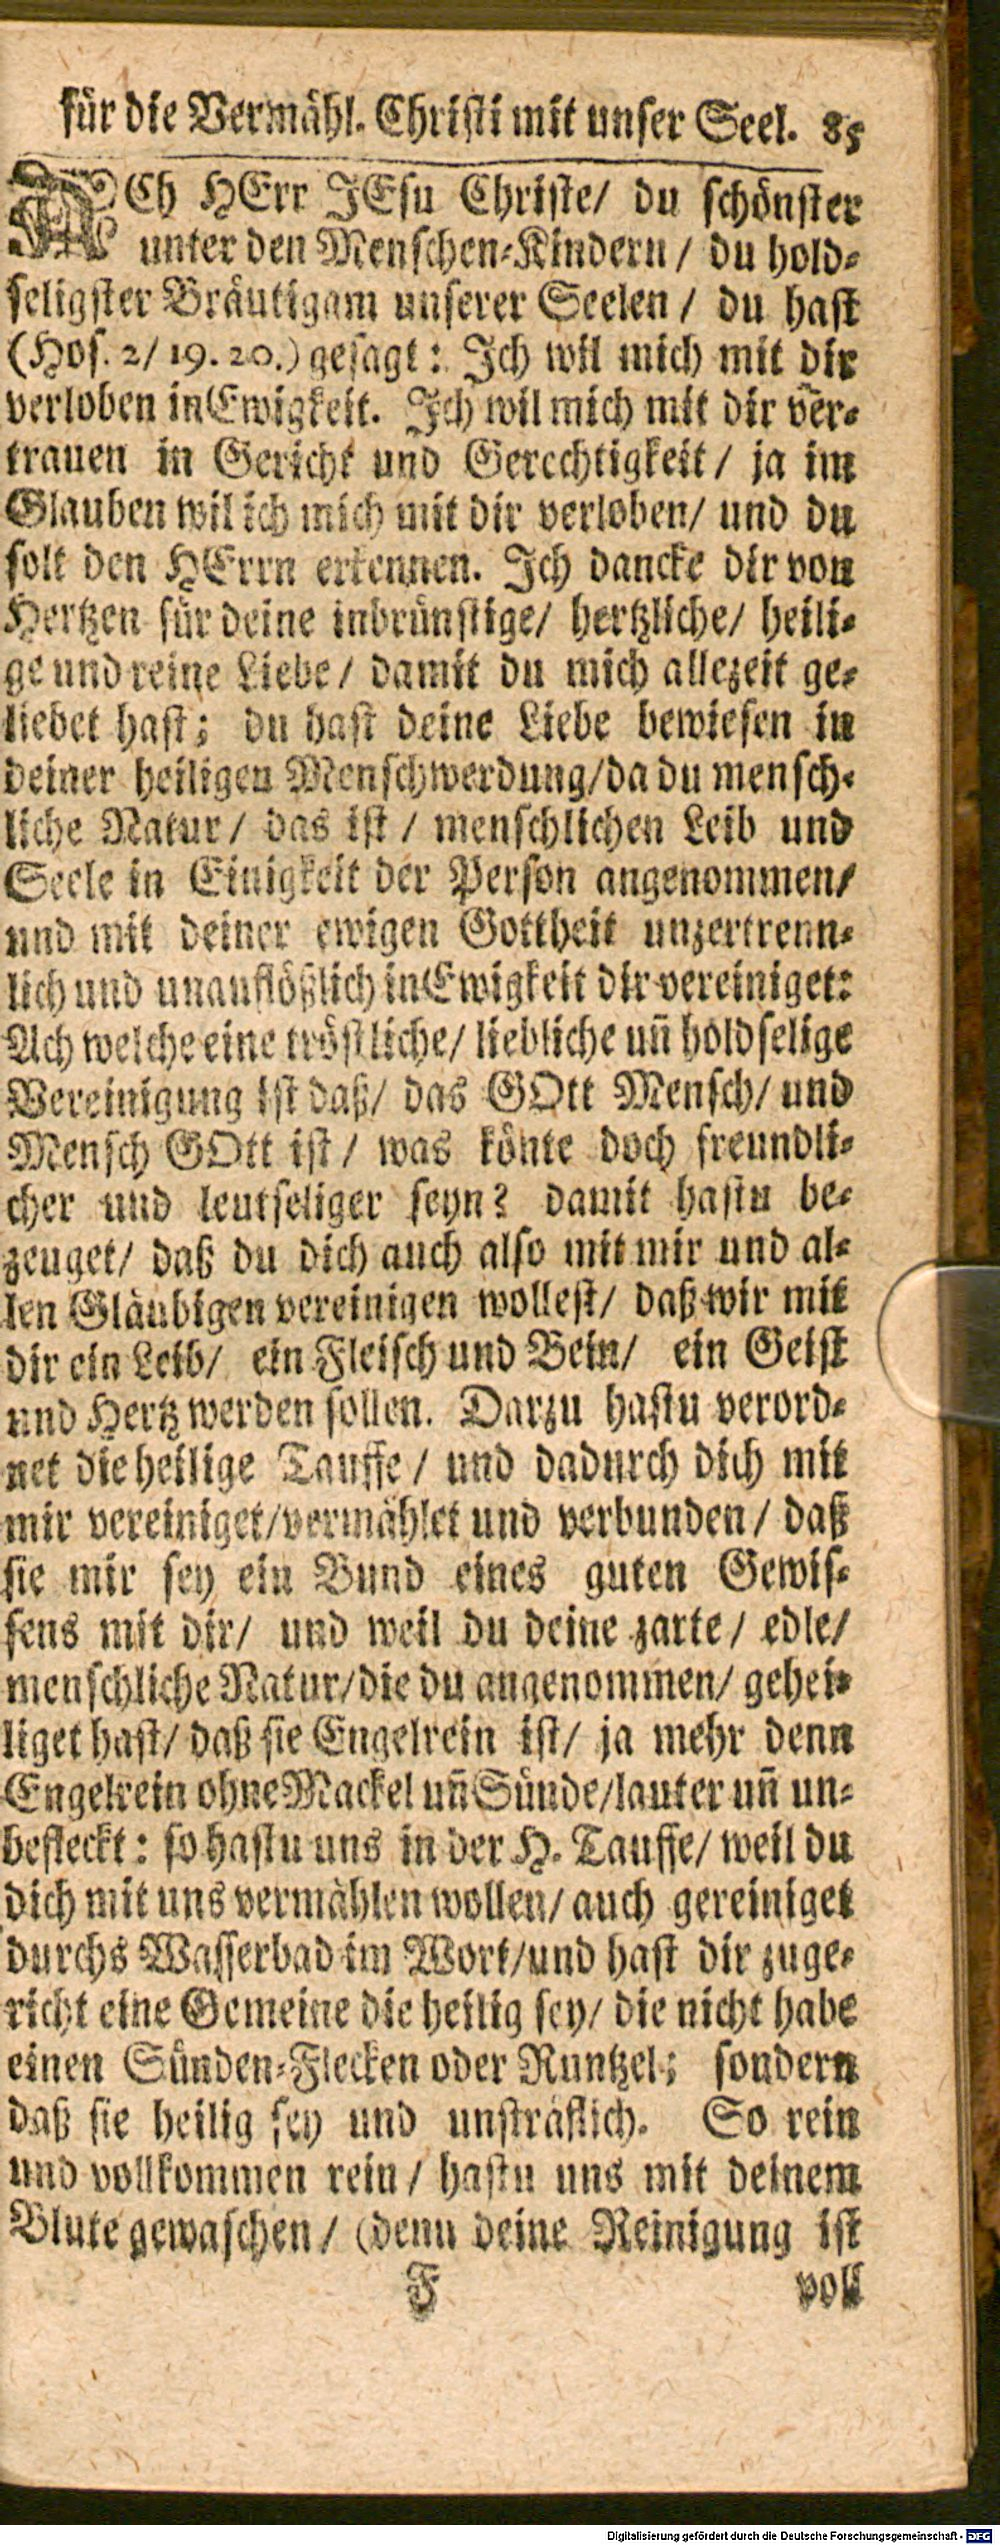 für die Vermähl. Christi mit unser Seel. 85
ACh HErr JEsu Christe/ du schönster
unter den Menschen-Kindern / du hold-
seligster Bräutigam unserer Seelen / du hast
(Hos. 2/ 19. 20.) gesagt: Ich wil mich mit dir
verloben in Ewigkeit. Ich wil mich mit dir ver-
trauen in Gericht und Gerechtigkeit / ja im
Glauben wil ich mich mit dir verloben/ und du
solt den HErrn erkennen. Ich dancke dir von
Hertzen für deine inbrünstige/ hertzliche/ heili-
ge und reine Liebe / damit du mich allezeit ge-
liebet hast; du hast deine Liebe bewiesen in
deiner heiligen Menschwerdung/da du mensch-
liche Natur / das ist / menschlichen Leib und
Seele in Einigkeit der Person angenommen/
und mit deiner ewigen Gottheit unzertrenn-
lich und unauflößlich in Ewigkeit dir vereiniget:
Ach welche eine tröstliche/ liebliche uñ holdselige
Vereinigung ist daß/ das GOtt Mensch/ und
Mensch GOtt ist / was könte doch freundli-
cher und leutseliger seyn? damit hastu be-
zeuget/ daß du dich auch also mit mir und al-
len Gläubigen vereinigen wollest/ daß wir mit
dir ein Leib/ ein Fleisch und Bein/ ein Geist
und Hertz werden sollen. Darzu hastu verord-
net die heilige Tauffe / und dadurch dich mit
mir vereiniget/vermählet und verbunden / daß
sie mir sey ein Bund eines guten Gewis-
sens mit dir/ und weil du deine zarte / edle/
menschliche Natur/die du angenommen/ gehei-
liget hast/ daß sie Engelrein ist/ ja mehr denn
Engelrein ohne Mackel uñ Sünde/lauter uñ un-
befleckt: so hastu uns in der H. Tauffe/ weil du
dich mit uns vermählen wollen/ auch gereiniget
durchs Wasserbad im Wort/und hast dir zuge-
richt eine Gemeine die heilig sey/ die nicht habe
einen Sünden-Flecken oder Runtzel; sondern
daß sie heilig sey und unsträflich. So rein
und vollkommen rein / hastu uns mit deinem
Blute gewaschen / (denn deine Reinigung ist
F voll
Digitalisierung gefördert durch die Deutsche Forschungsgemeinschaft - DFG